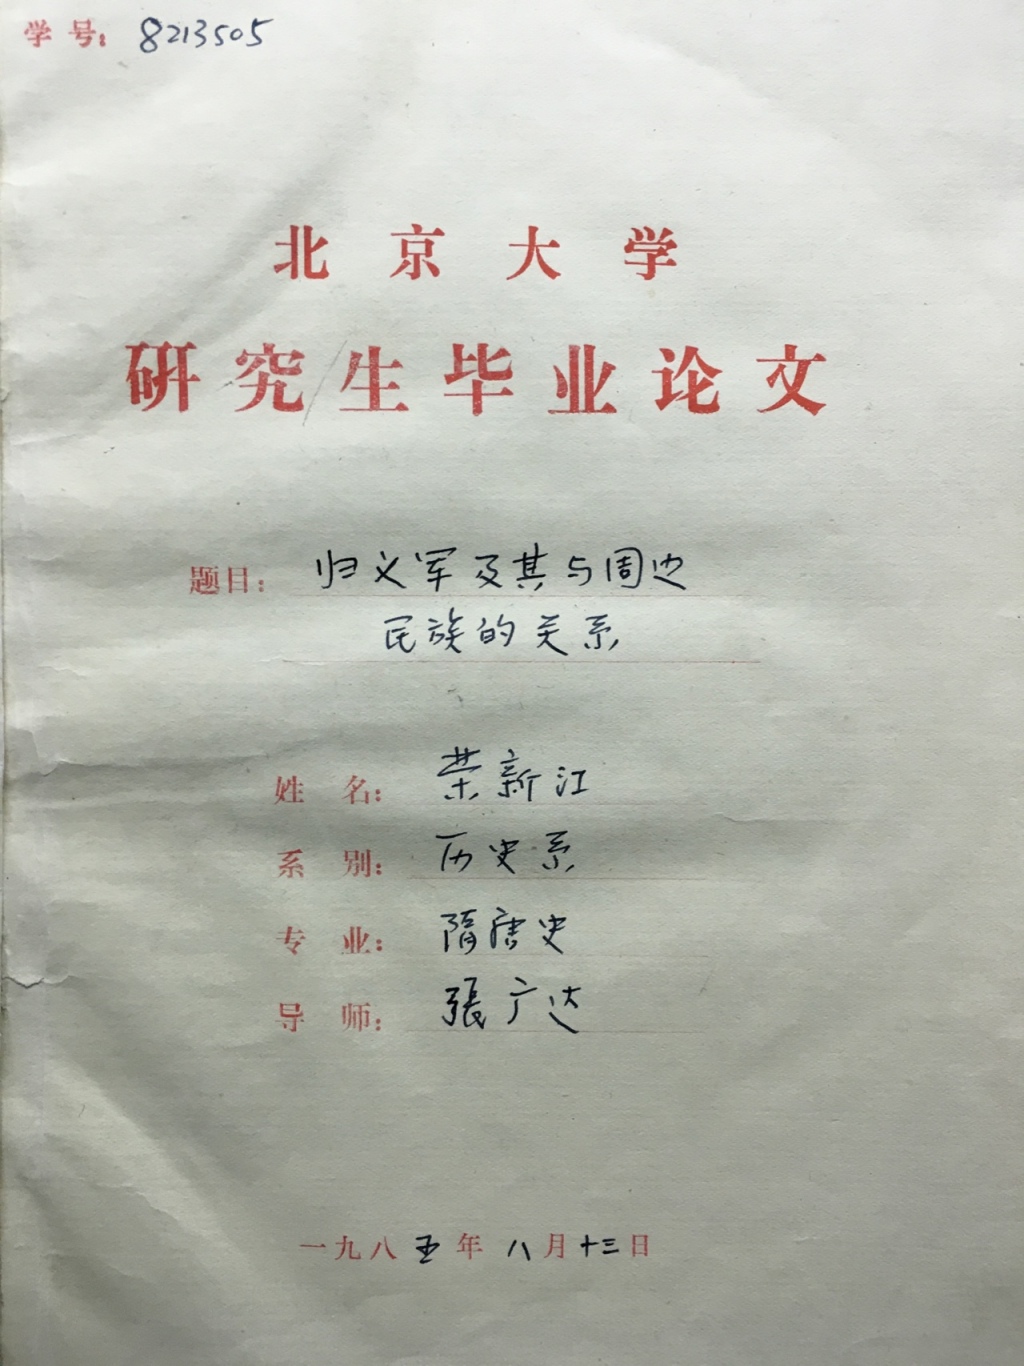 学号：8213505
北京大学
研究生毕业论文
题目：归义军及其与周边
民族的关系
姓名：荣新江
系别：历史系
专业：隋唐史
导师：張广达
一九八五年八月十三日